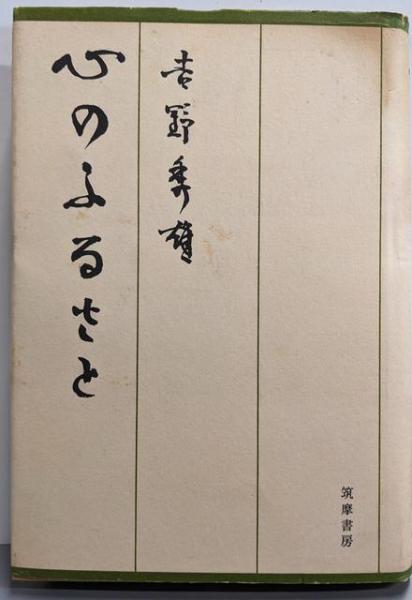 心のふるさと
吉野秀雄
筑摩書房